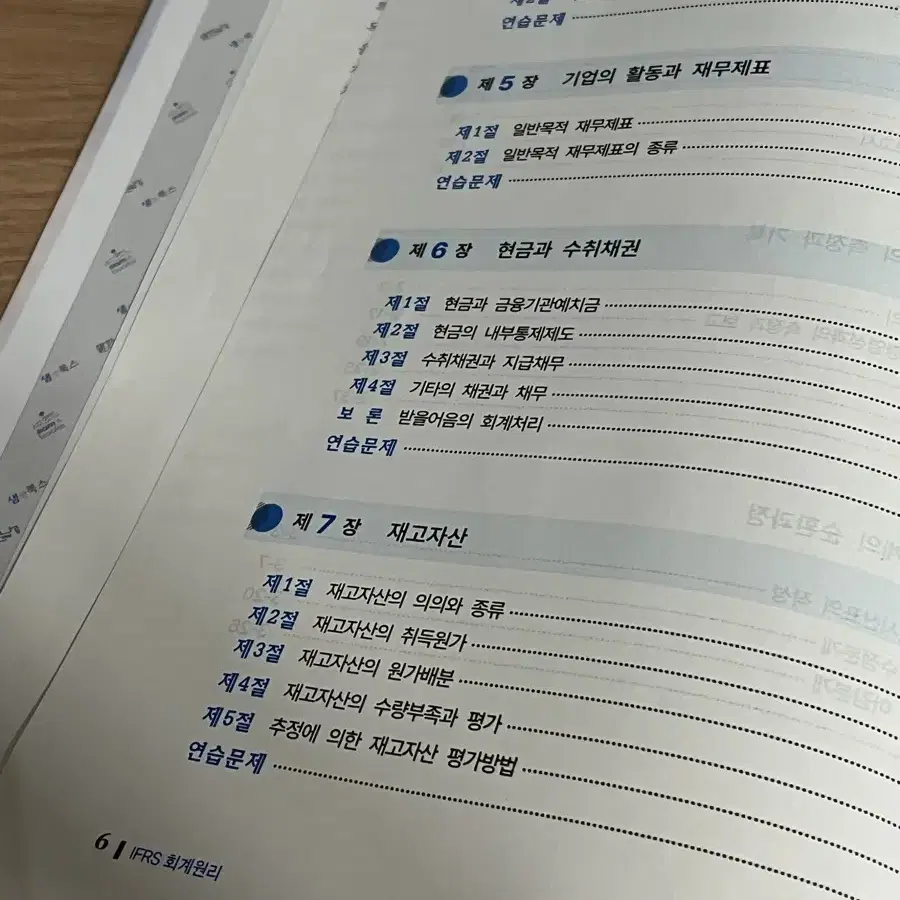 연습문제
제 5 장 기업의 활동과 재무제표
제1절 일반목적 재무제표
제2절 일반목적 재무제표의 종류
연습문제
제 6 장 현금과 수취채권
제1절 현금과 금융기관예치금
제2절 현금의 내부통제제도
제3절 수취채권과 지급채무
제4절 기타의 채권과 채무
보 론 받을어음의 회계처리
연습문제
제 7 장 재고자산
제1절 재고자산의 의의와 종류
제2절 재고자산의 취득원가
제3절 재고자산의 원가배분
제4절 재고자산의 수량부족과 평가
제5절 추정에 의한 재고자산 평가방법
연습문제
6 IFRS 회계원리